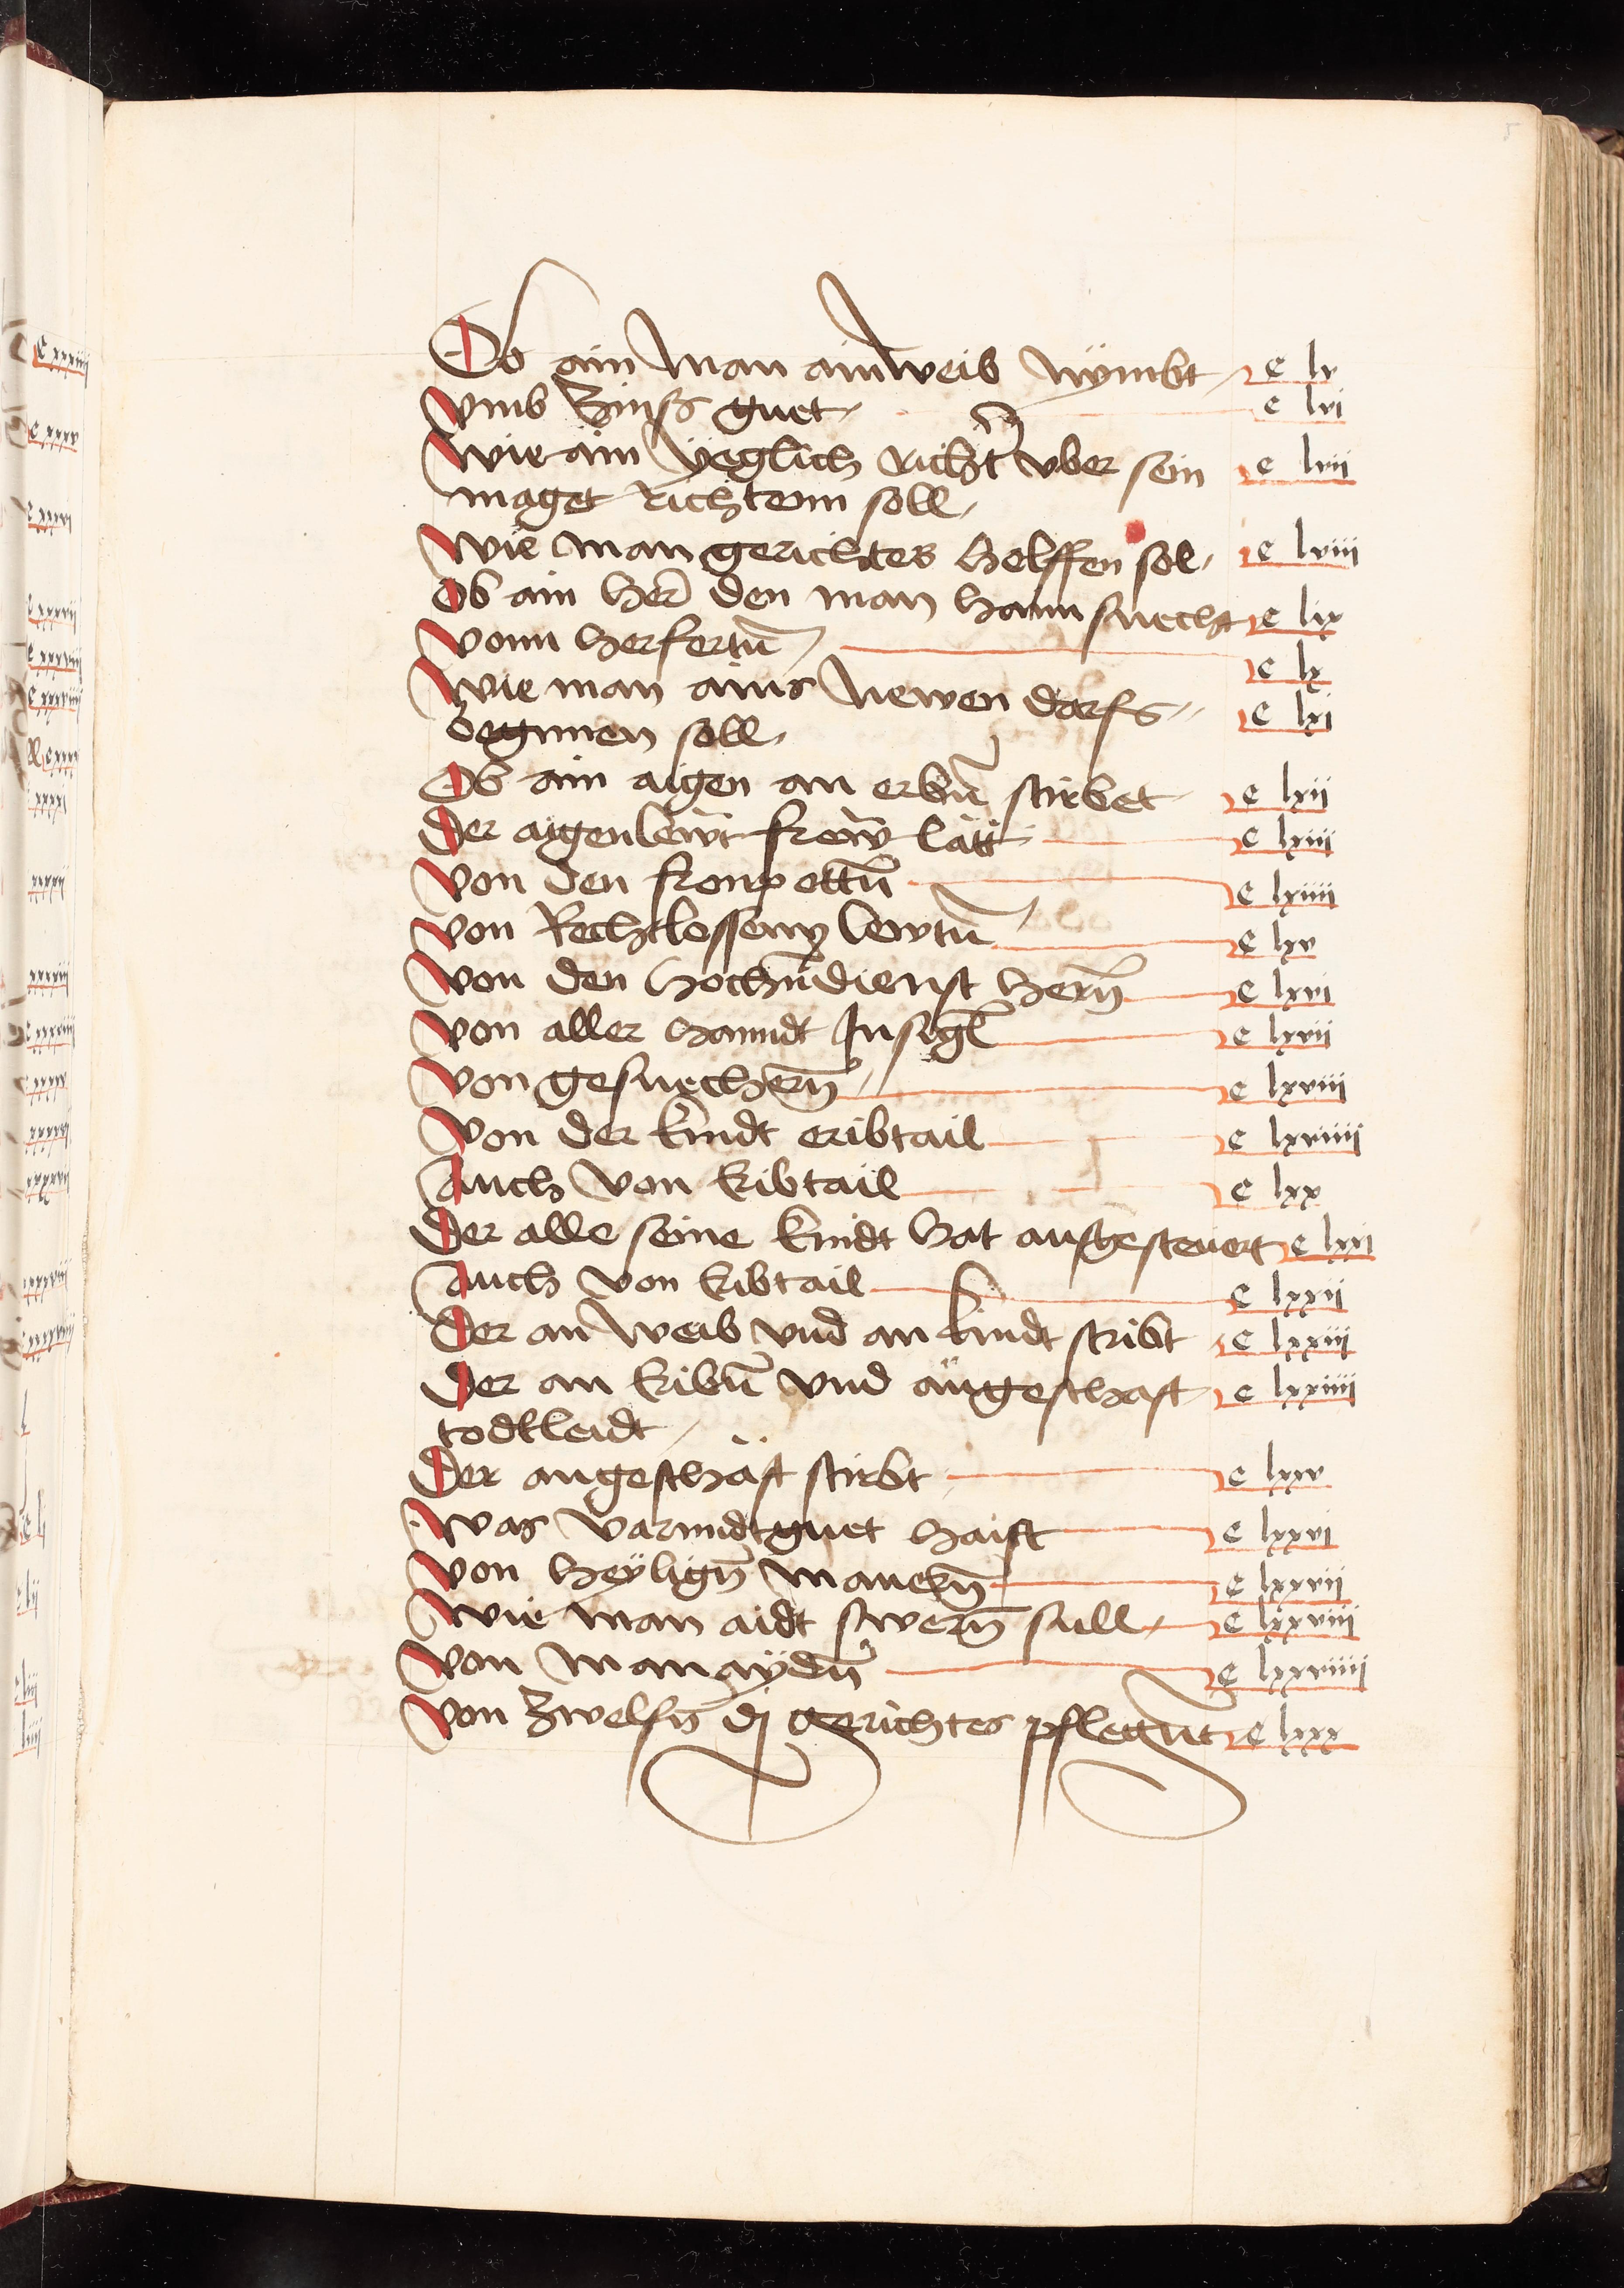 Ob ain man ain weib nÿmbt c lv
vmb Zinsß guet c lvi
wie ain ÿeglich richtr̄ vber sein c lvii
maget richtenn soll
wie man gerichtes helffen sol c lviii
Ob ain her̄ den man haim suecht c lix
vonn herfertn̄ c lx
wie man ains newen dorfs c lxi
beginnen soll
Ob ain aigen an erbn̄ stirbet c lxii
der aigen lewt freÿ lätt c lxiii
von den c lxiiii
von Rechtlossenn lewtn̄ c lxv
von den hochn̄ dienst hern̄ c lxvi
von aller hanndt Insigl c lxvii
von gesuechern̄ c lxviii
von der kindt eribtail c lxviiii
Auch von Eribtail c lxx
Der alle seine kindt hat ausgesteuert c lxxi
Auch von Eribtail c lxxii
Der an weib vnd an kindt stribt c lxxiii
Der an Eribn̄ vnd an geschaft c lxxiiii
todtleidt
Der an geschäft stirbt c lxxv
was varundt guet haist c lxxvi
von heÿlign̄ c lxxvii
wie man aidt swern̄ sull c lxxviii
von manaÿdn̄ c lxxviiii
von Zwelfn̄ dj gerichtes pflegn̄t c lxxx